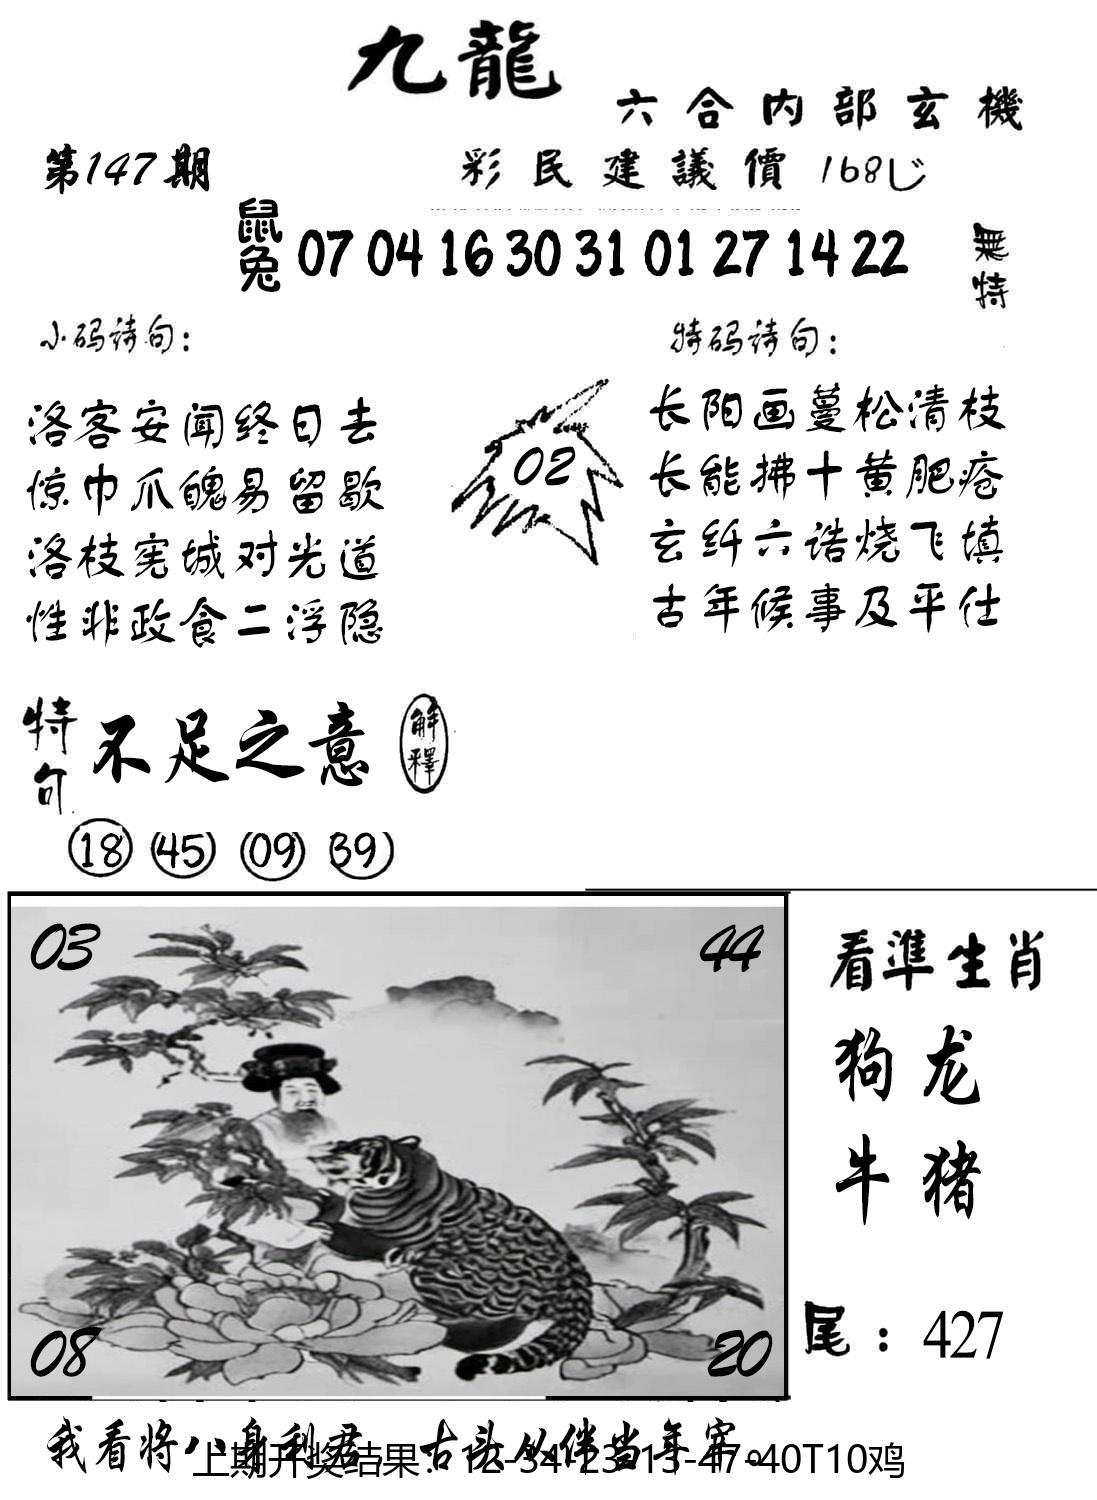 九龍
六合内部玄機
第147期
彩民建議價 168
鼠兔 07 04 16 30 31 01 27 14 22
無特
小码诗句：
洛客安闻终日去
惊巾爪魄易留歇
洛枝宪城对光道
性非政食二浮隐
02
特码诗句：
长阳画蔓松清枝
长能拂十黄肥疮
玄纤六诰烧飞填
古年候事及平仕
特句 不足之意 解釋
18 45 09 39
03 44
08 20
看準生肖
狗龙
牛猪
尾：427
我看将八身利君，古头从伴当年寒。
上期开奖结果：12-34-23-13-47-40T10鸡